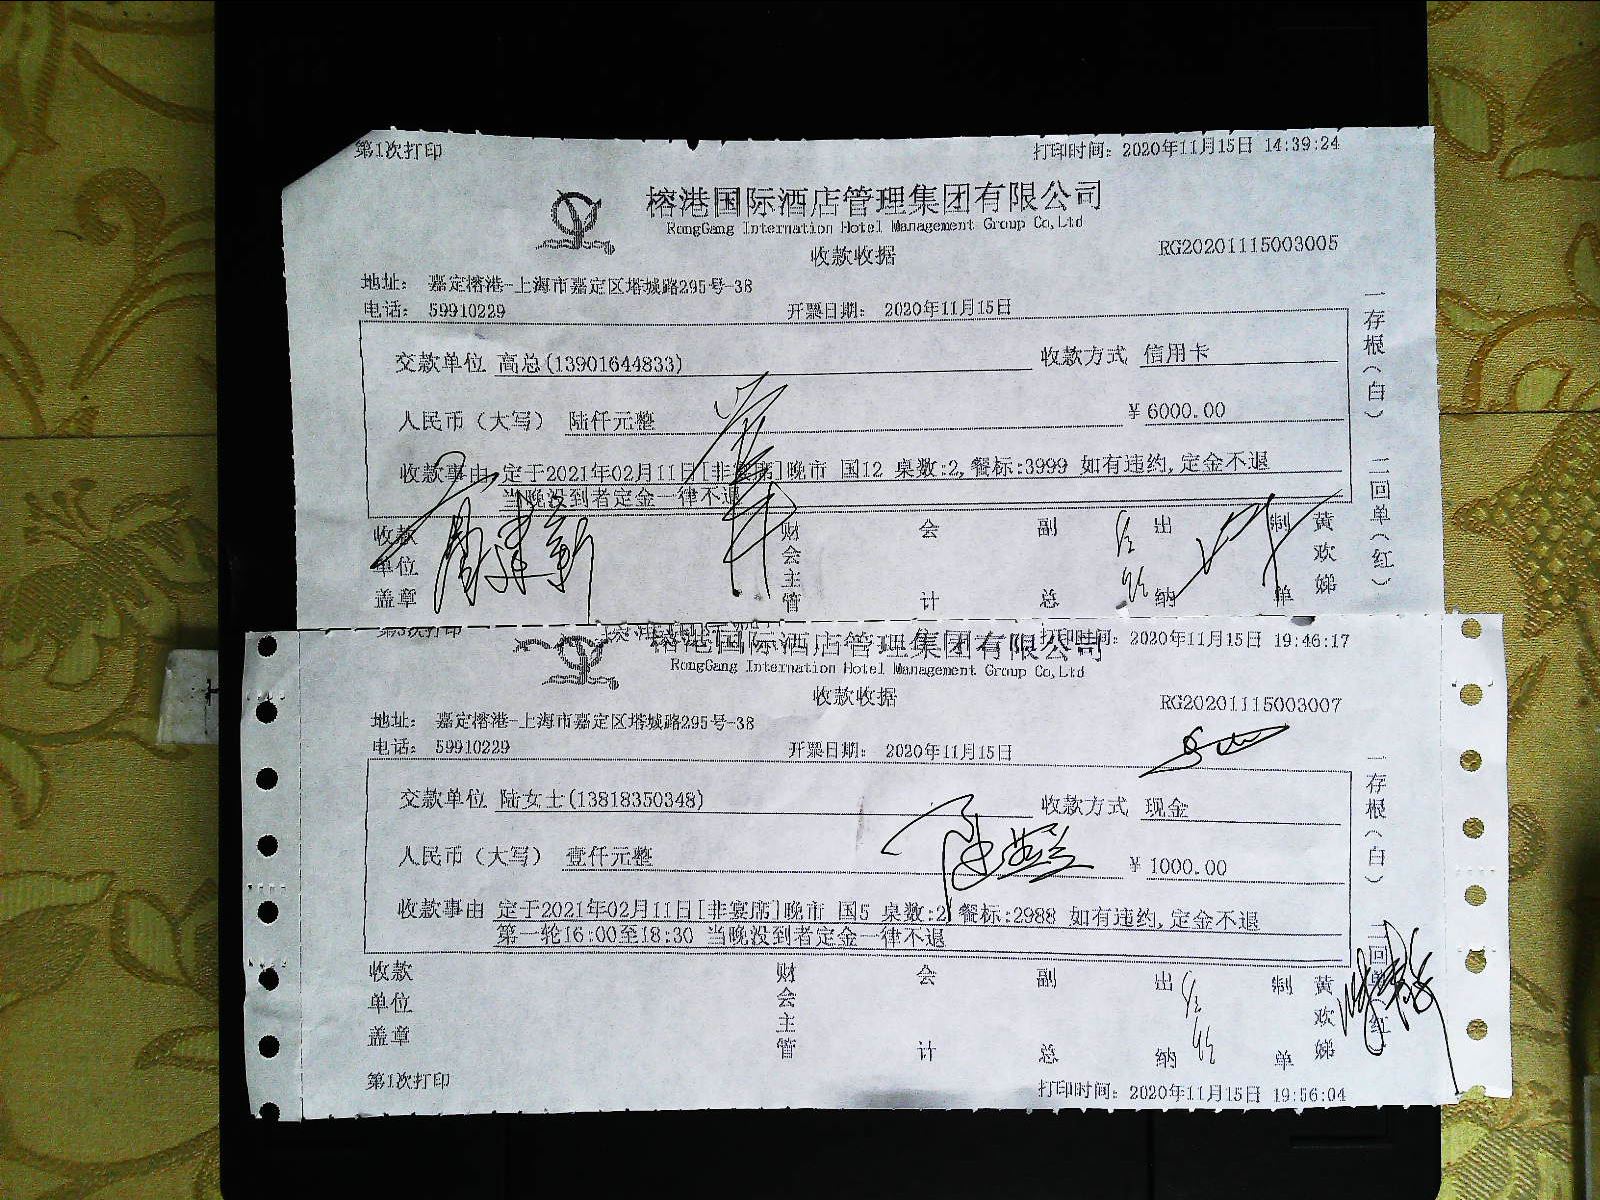 第1次打印 打印时间：2020年11月15日 14:39:24
榕港国际酒店管理集团有限公司
RongGang Internation Hotel Management Group Co,Ltd
收款收据 RG20201115003005
地址： 嘉定榕港-上海市嘉定区塔城路295号-38
电话： 59910229 开票日期： 2020年11月15日
交款单位 高总(13901644833) 收款方式 信用卡
人民币（大写） 陆仟元整 ￥6000.00
收款事由 定于2021年02月11日[非宴席]晚市 国12 桌数:2,餐标:3999 如有违约,定金不退
当晚没到者定金一律不退
收款单位盖章 财会主管 会计 副总 出纳 制单 黄欢娣
一存根（白） 二回单（红）
第3次打印 打印时间：2020年11月15日 19:46:17
榕港国际酒店管理集团有限公司
RongGang Internation Hotel Management Group Co,Ltd
收款收据 RG20201115003007
地址： 嘉定榕港-上海市嘉定区塔城路295号-38
电话： 59910229 开票日期： 2020年11月15日
交款单位 陆女士(13818350348) 收款方式 现金
人民币（大写） 壹仟元整 ￥1000.00
收款事由 定于2021年02月11日[非宴席]晚市 国5 桌数:2 餐标:2988 如有违约,定金不退
第一轮16:00至18:30 当晚没到者定金一律不退
收款单位盖章 财会主管 会计 副总 出纳 制单 黄欢娣
一存根（白） 二回单（红
第1次打印 打印时间：2020年11月15日 19:56:04